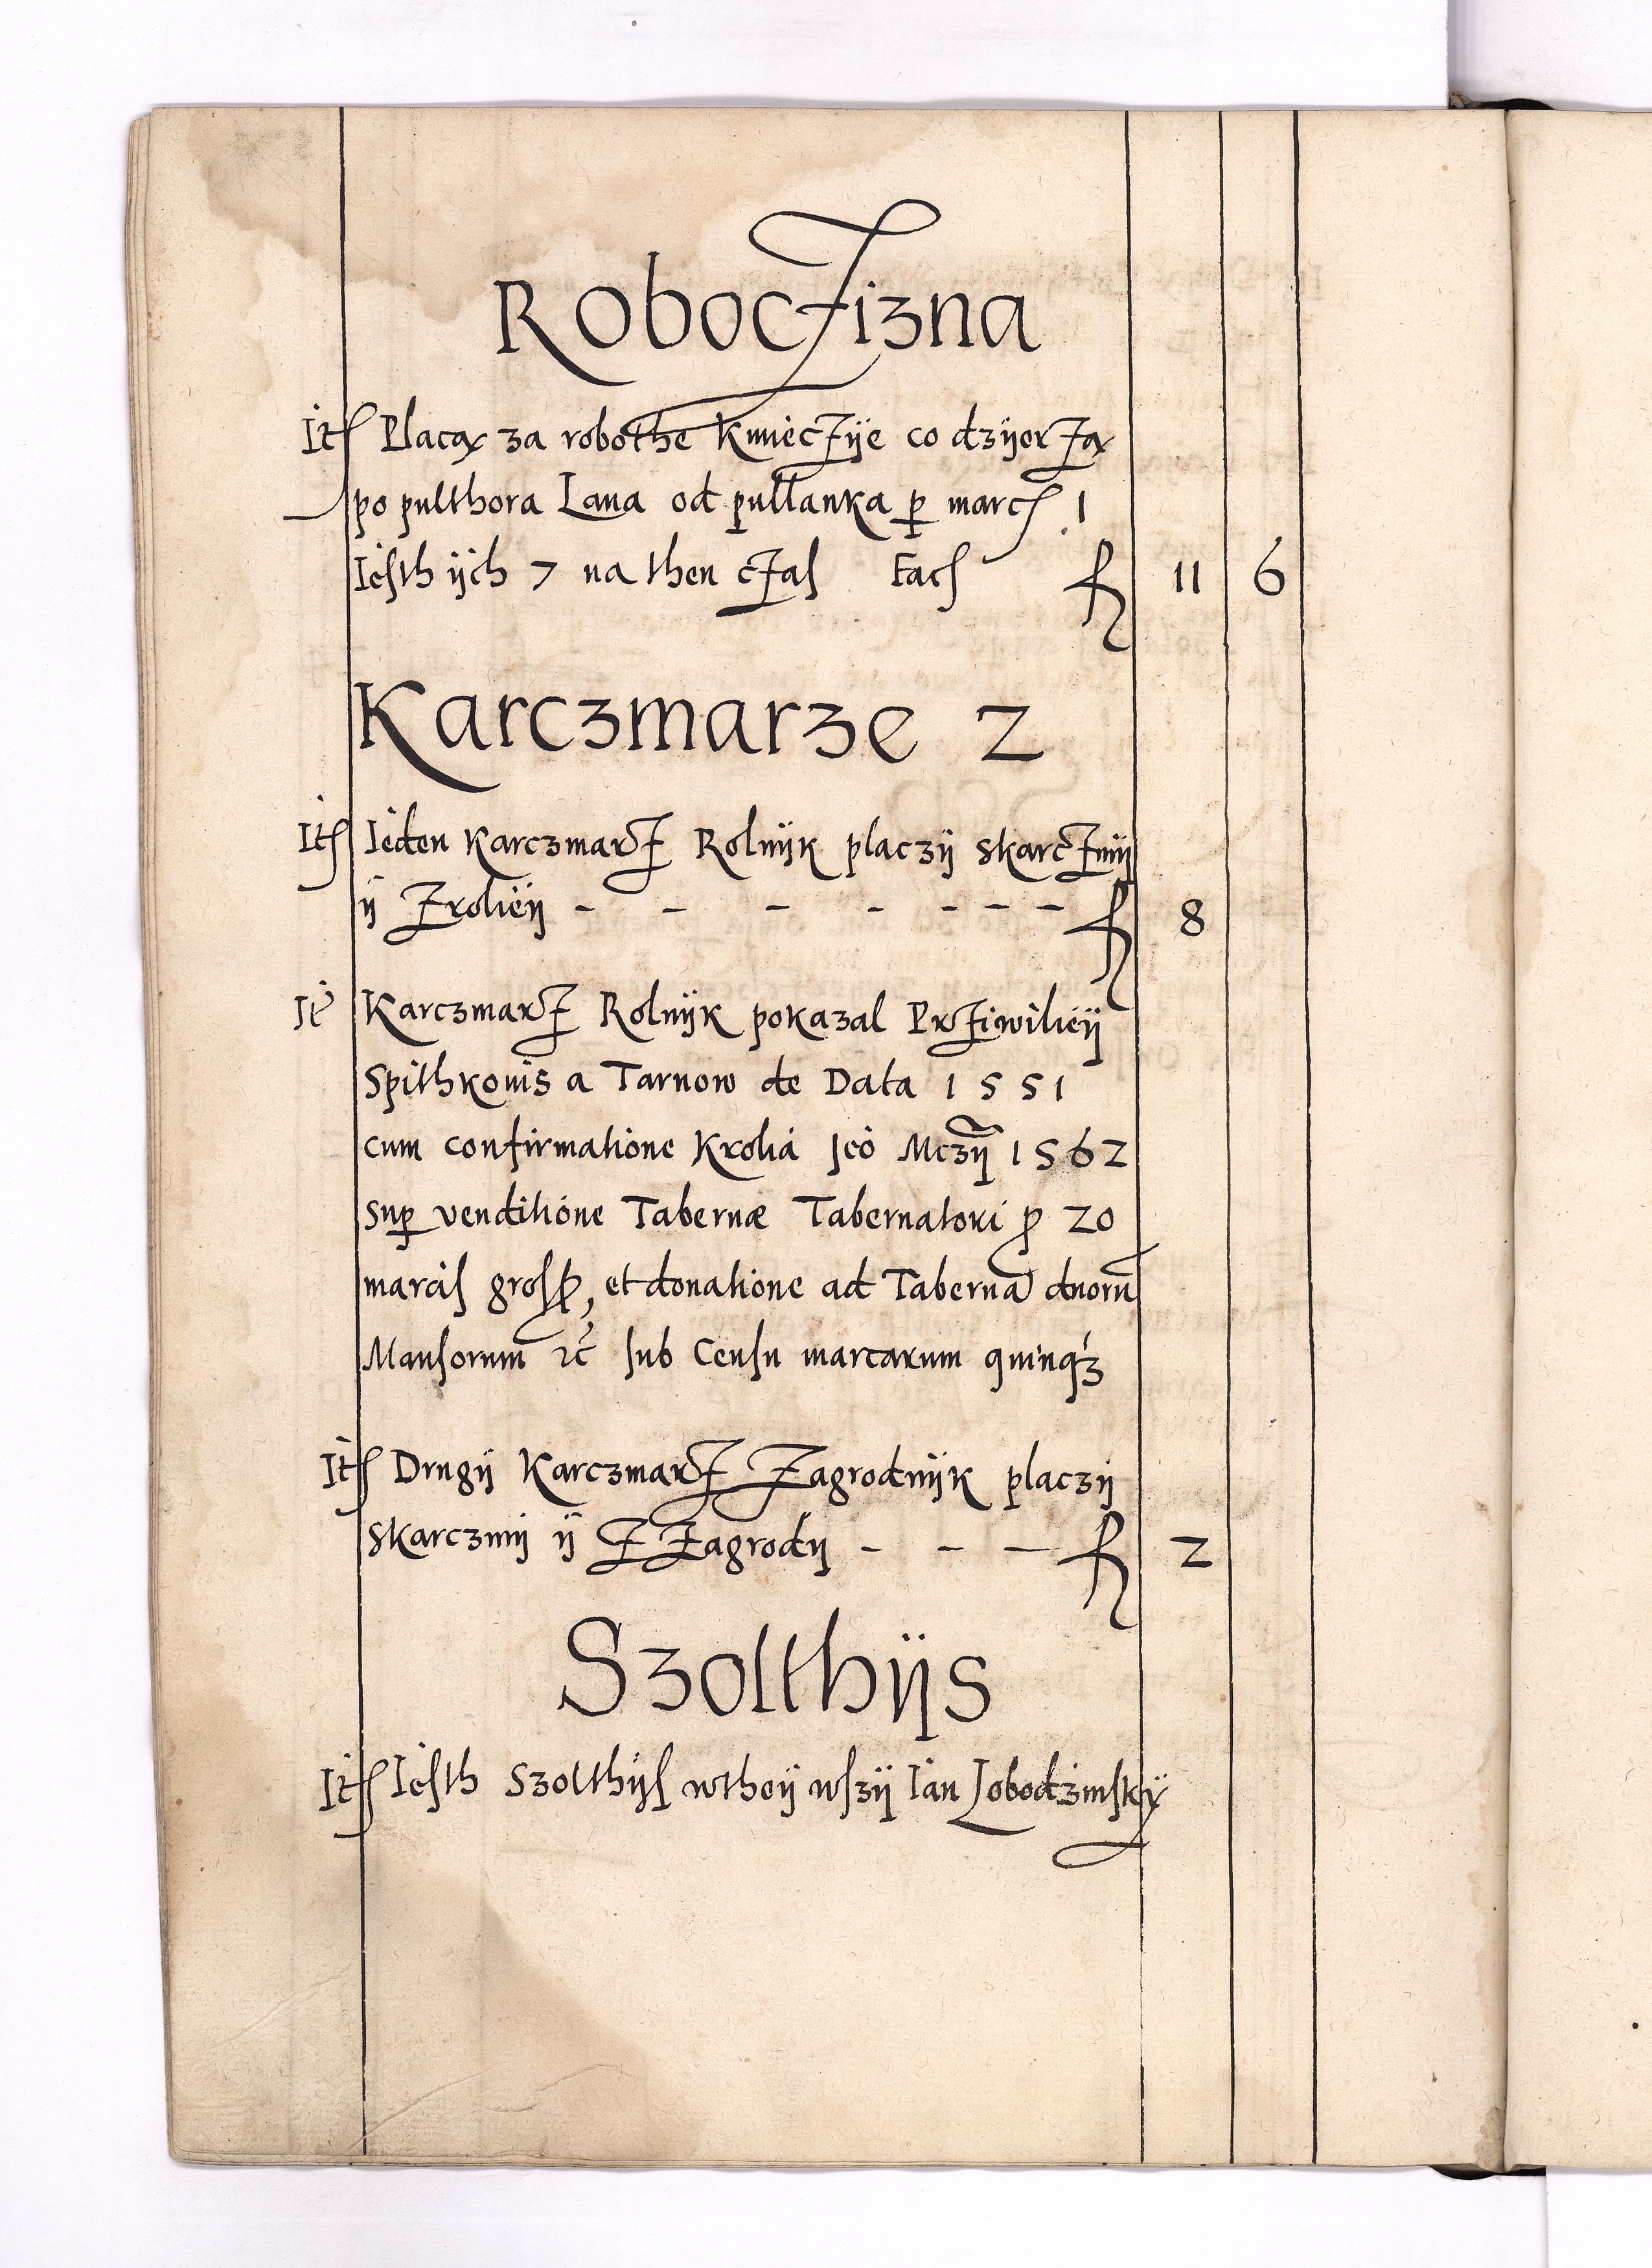 Roboczizna
Itē Placą za robothe kmieczÿe co dzÿerzą
po pulthora Lana od pullanka p marc 1
Iesth ÿch 7 na then czas fac f 11 6
Karczmarze 2
Itē Ieden Karczmarz Rolnÿk placzÿ skarczmÿ
ÿ Zroliëÿ - - - - - - - f 8
Itē Karczmarz Rolnÿk pokazal Prziwilieÿ
Spithkonis a Tarnow de Data 1551
cum confirmatione Krolia Jeō Mczÿ 1562
sup venditione Tabernæ Tabernatori p 20
marcis gross, et donatione ad Tabernā duorū
Mansorum ꝛc̄ sub Censu marcarum quinqꝫ
Itē Drugÿ Karczmarz Zagrodnÿk placzÿ
skarczmÿ ÿ Z Zagrodÿ - - - f 2
Szolthÿs
Itē Iesth Szolthÿs wtheÿ wszÿ Ian Lobodzinskÿ